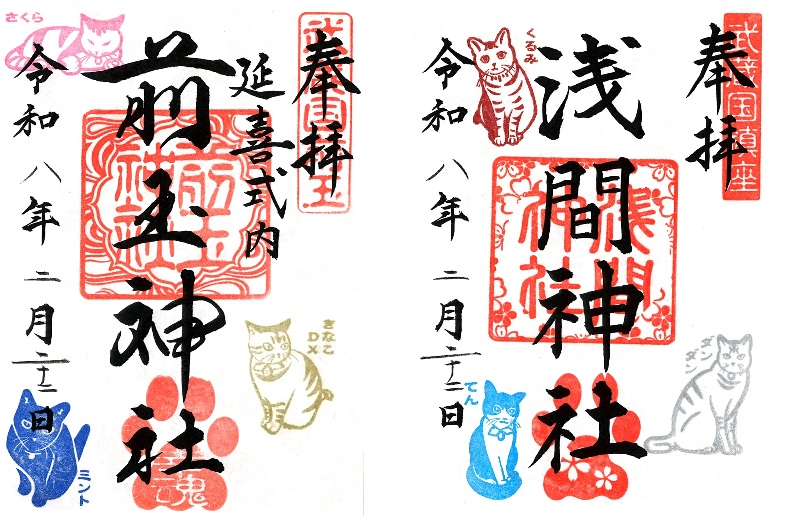 奉拝
延喜式内
前玉神社
令和八年二月二十二日
さくら
きなこDX
ミント
前玉神社
魂
奉拝
武蔵国鎮座
浅間神社
令和八年二月二十二日
くるみ
てん
ダンダン
浅間神社